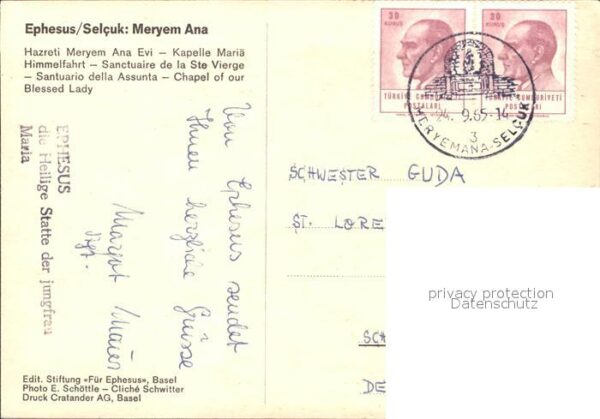 Ephesus/Selçuk: Meryem Ana
Hazreti Meryem Ana Evi – Kapelle Mariä
Himmelfahrt – Sanctuaire de la Ste Vierge
– Santuario della Assunta – Chapel of our
Blessed Lady
EPHESUS
die Heilige Statte der jungfrau
Maria
Von Ephesus sendet
Ihnen herzliche Grüsse
Margot Mauer
Edit. Stiftung «Für Ephesus», Basel
Photo E. Schöttle – Cliché Schwitter
Druck Cratander AG, Basel
30
KURUŞ
TÜRKİYE
POSTALARI
30
KURUŞ
TÜRKİYE CUMHURİYETİ
POSTALARI
9.65-14
3
MERYEMANA-SELÇUK
SCHWESTER GUDA
ST. LORE
SCH
DE
privacy protection
Datenschutz